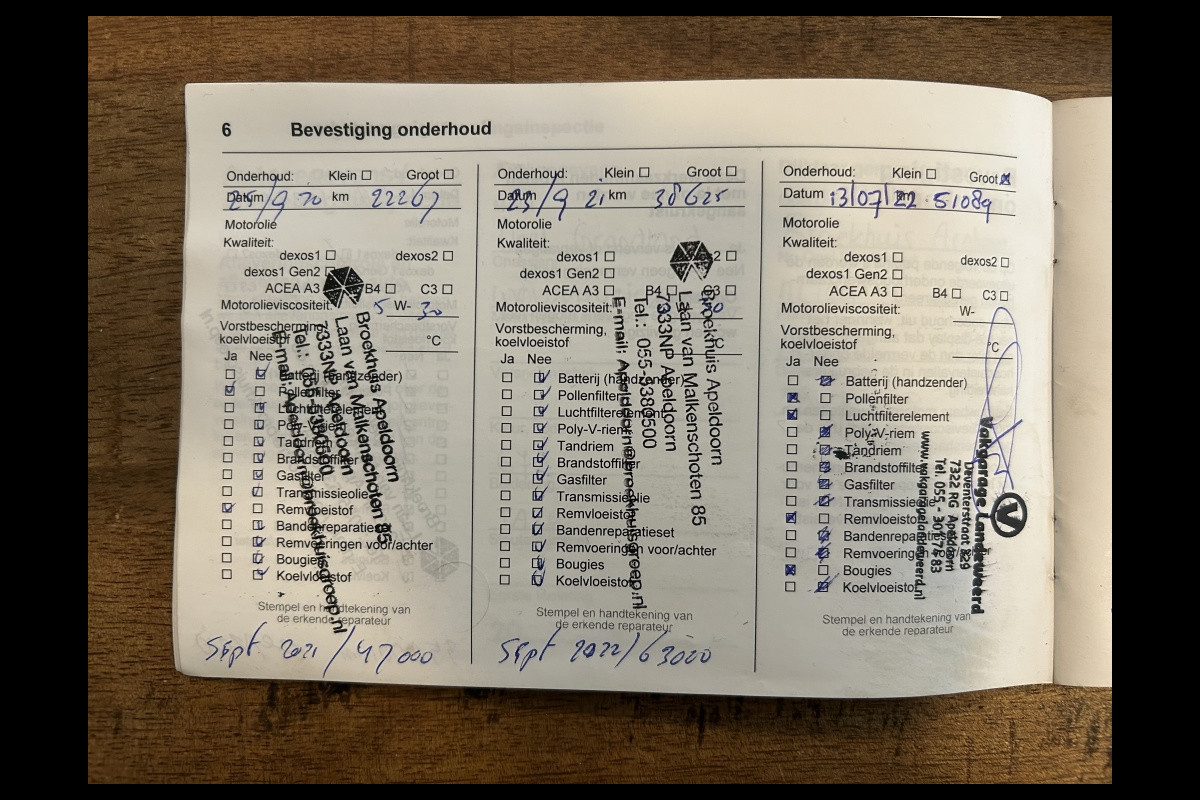 6 Bevestiging onderhoud
Onderhoud: Klein ☐ Groot ☐
Datum 25/9 20 km 22267
Motorolie
Kwaliteit:
dexos1 ☐ dexos2 ☐
dexos1 Gen2 ☐
ACEA A3 B4 ☐ C3 ☐
Motorolieviscositeit: 5 W- 30
Vorstbescherming,
koelvloeistof °C
Ja Nee
☐ ☑ Batterij (handzender)
☑ ☐ Pollenfilter
☐ ☑ Luchtfilterelement
☐ ☑ Poly-V-riem
☐ ☑ Tandriem
☐ ☑ Brandstoffilter
☐ ☑ Gasfilter
☐ ☑ Transmissieolie
☑ ☐ Remvloeistof
☐ ☑ Bandenreparatieset
☐ ☑ Remvoeringen voor/achter
☐ ☑ Bougies
☐ ☑ Koelvloeistof
Broekhuis Apeldoorn
Laan van Malkenschoten 85
7333NP Apeldoorn
Tel.: 055-5380500
E-mail: Apeldoorn@broekhuisgroep.nl
Stempel en handtekening van
de erkende reparateur
Sept 2021 / 47000
Onderhoud: Klein ☐ Groot ☐
Datum 23/9 21 km 38625
Motorolie
Kwaliteit:
dexos1 ☐ s2 ☐
dexos1 Gen2 ☐
ACEA A3 ☐ B4 ☐ C3 ☐
Motorolieviscositeit:
Vorstbescherming,
koelvloeistof
Ja Nee
☐ ☑ Batterij (handzender)
☐ ☑ Pollenfilter
☐ ☑ Luchtfilterelement
☐ ☑ Poly-V-riem
☐ ☑ Tandriem
☐ ☑ Brandstoffilter
☐ ☑ Gasfilter
☐ ☑ Transmissieolie
☐ ☑ Remvloeistof
☐ ☑ Bandenreparatieset
☐ ☑ Remvoeringen voor/achter
☐ ☑ Bougies
☐ ☑ Koelvloeistof
Broekhuis Apeldoorn
Laan van Malkenschoten 85
7333NP Apeldoorn
Tel.: 055-5380500
E-mail: Apeldoorn@broekhuisgroep.nl
Stempel en handtekening van
de erkende reparateur
Sept 2022/63000
Onderhoud: Klein ☐ Groot ☒
Datum 13/07/22 km 51089
Motorolie
Kwaliteit:
dexos1 ☐ dexos2 ☐
dexos1 Gen2 ☐
ACEA A3 ☐ B4 ☐ C3 ☐
Motorolieviscositeit: W-
Vorstbescherming,
koelvloeistof °C
Ja Nee
☐ ☒ Batterij (handzender)
☒ ☐ Pollenfilter
☒ ☐ Luchtfilterelement
☐ ☒ Poly-V-riem
☐ ☒ Tandriem
☐ ☒ Brandstoffilter
☐ ☒ Gasfilter
☐ ☒ Transmissieolie
☒ ☐ Remvloeistof
☐ ☒ Bandenreparatieset
☐ ☒ Remvoeringen
☒ ☐ Bougies
☐ ☒ Koelvloeistof
V
Vakgarage Landeweerd
Deventerstraat 829
7322 RG Apeldoorn
Tel. 055 - 301 74 83
www.vakgaragelandeweerd.nl
Stempel en handtekening van
de erkende reparateur